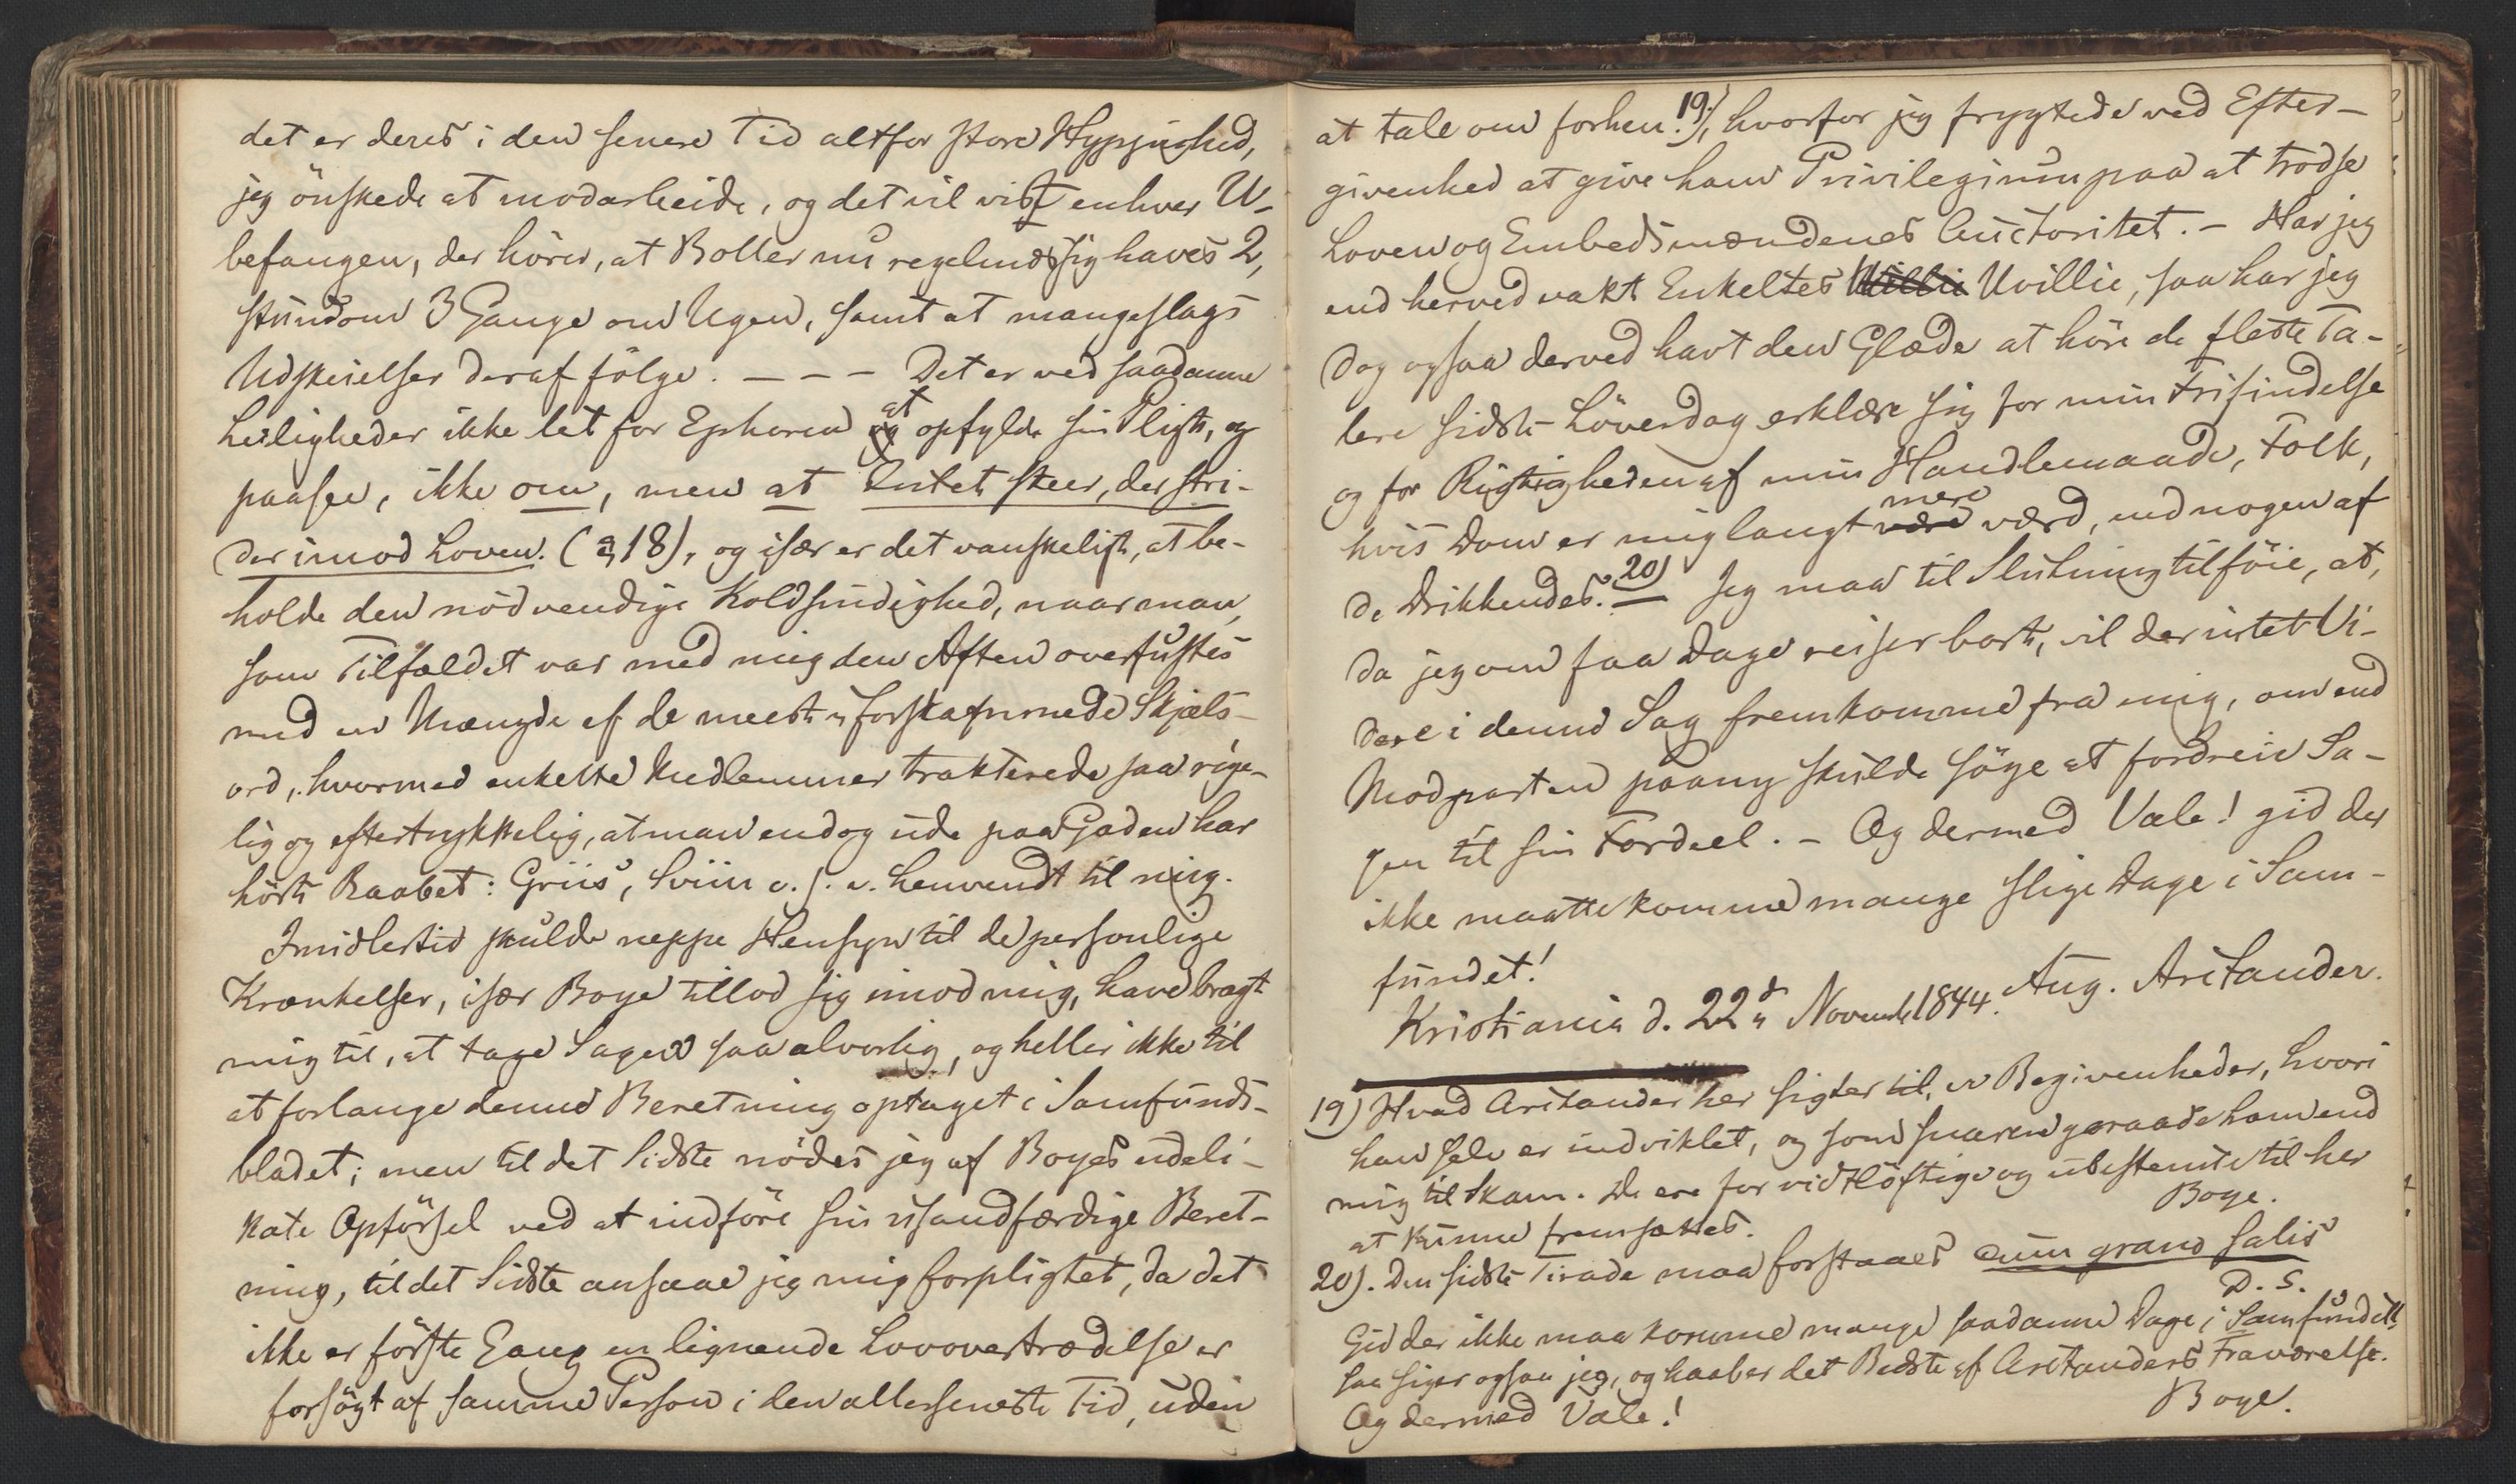 det er deres i den senere Tid altfor store Hyppighed,
jeg önskede at modarbeide, og det vil vist enhver U-
befangen, der hörer, at Boller nu regelmæssig haves 2,
stundom 3 Gange om Ugen, samt at mangeslags
Udskeielser deraf fölge. - - - Det er ved saadanne
Leiligheder ikke let for Ephoren at opfylde sin Pligt, og
paasee, ikke om, men at Intet skeer, der stri-
der imod Loven. (a, 18), og især er det vanskeligt, at be-
holde den nödvendige Koldsindighed, naar man,
som Tilfældet var med mig den Aften overfustes
med en Mængde af de meest uforskammede Skjels-
ord, hvormed enkelte Medlemmer trakterede saa rige-
lig og eftertrykkelig, at man endog ude paa Gaden har
hört Raabet: Griis, Sviin o. s. v. henvendt til mig.
Imidlertid skulde neppe Hensyn til de personlige
Krænkelser, især Boye tillod sig imod mig, have bragt
mig til, at tage Sagen saa alvorlig, og heller ikke til
at forlange denne Beretning optaget i Samfunds-
bladet; men til det Sidste nödes jeg af Boyes udeli-
kate Opförsel ved at indföre sin usandfærdige Beret-
ning, til det Sidste ansaae jeg mig forpligtet, da det
ikke er förste Gang en lignende Lovovertrædelse er
forsögt af samme Person i den allerseneste Tid, uden
at tale om forhen. 19), hvorfor jeg frygtede ved Efter-
givenhed at give ham Privilegium paa at trodse
Loven og Embedsmændenes Auctoritet. - Har jeg
end herved vakt Enkeltes Willie Uvillie, saa har jeg
dog ogsaa derved havt den Glæde at höre de fleste Ta-
lere sidste Löverdag erklære sig for min Frifindelse
og for Rigtigheden af min Handlemaade, Folk,
hvis Dom er mig langt mere værd, end nogen af
de Drikkendes. 20) Jeg maa til Slutning tilföie, at,
da jeg om faa Dage reiser bort, vil der intet Vi-
dere i denne Sag fremkomme fra mig, om end
Modparten paany skulde söge at fordreie Sa-
gen til sin Fordeel. - Og dermed Vale! gid der
ikke maatte komme mange slige Dage i Sam-
fundet!
Kristiania d. 22d Novemb. 1844. Aug. Aritander.
19) Hvad Aritander her sigter til, er Begivenheder, hvori
han selv er indviklet, og som snarere geraade ham end
mig til Skam. De ere for vidtlöftige og ubestemte til her
at kunne fremsættes.
Boye.
20). Den sidste Tirade maa forstaaes cum grano salis
D. S.
Gid der ikke maa komme mange saadanne Dage i Samfundet!
saa siger ogsaa jeg, og haaber det Bedste af Aritanders Fraværelse.
Og dermed Vale!
Boye.